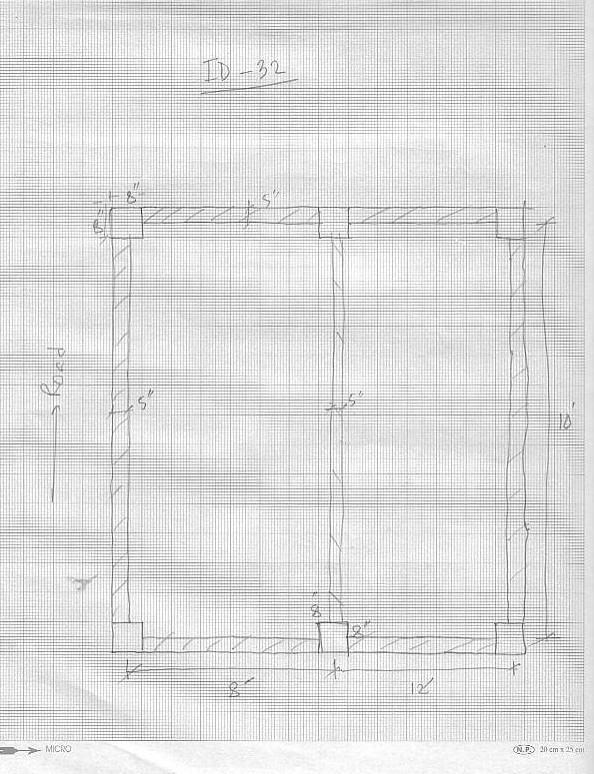 ID-32
8"
5"
8"
Road
5"
5"
10'
8"
8"
8'
12'
MICRO
N.P. 20 cm x 25 cm